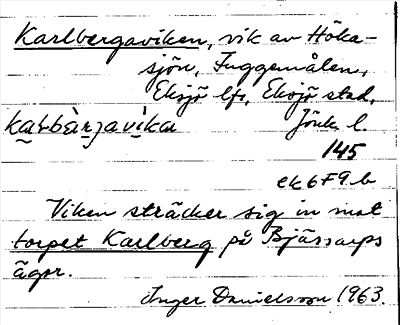 Karlbergaviken, vik av Höka-
sjön, Fuggemålen,
Eksjö lfs, Eksjö stad,
Jönk l.
145
ek 6 F 9 b
Viken sträcker sig in mot
torpet Karlberg på Bjässarps
ägor.
Inger Danielsson 1963.